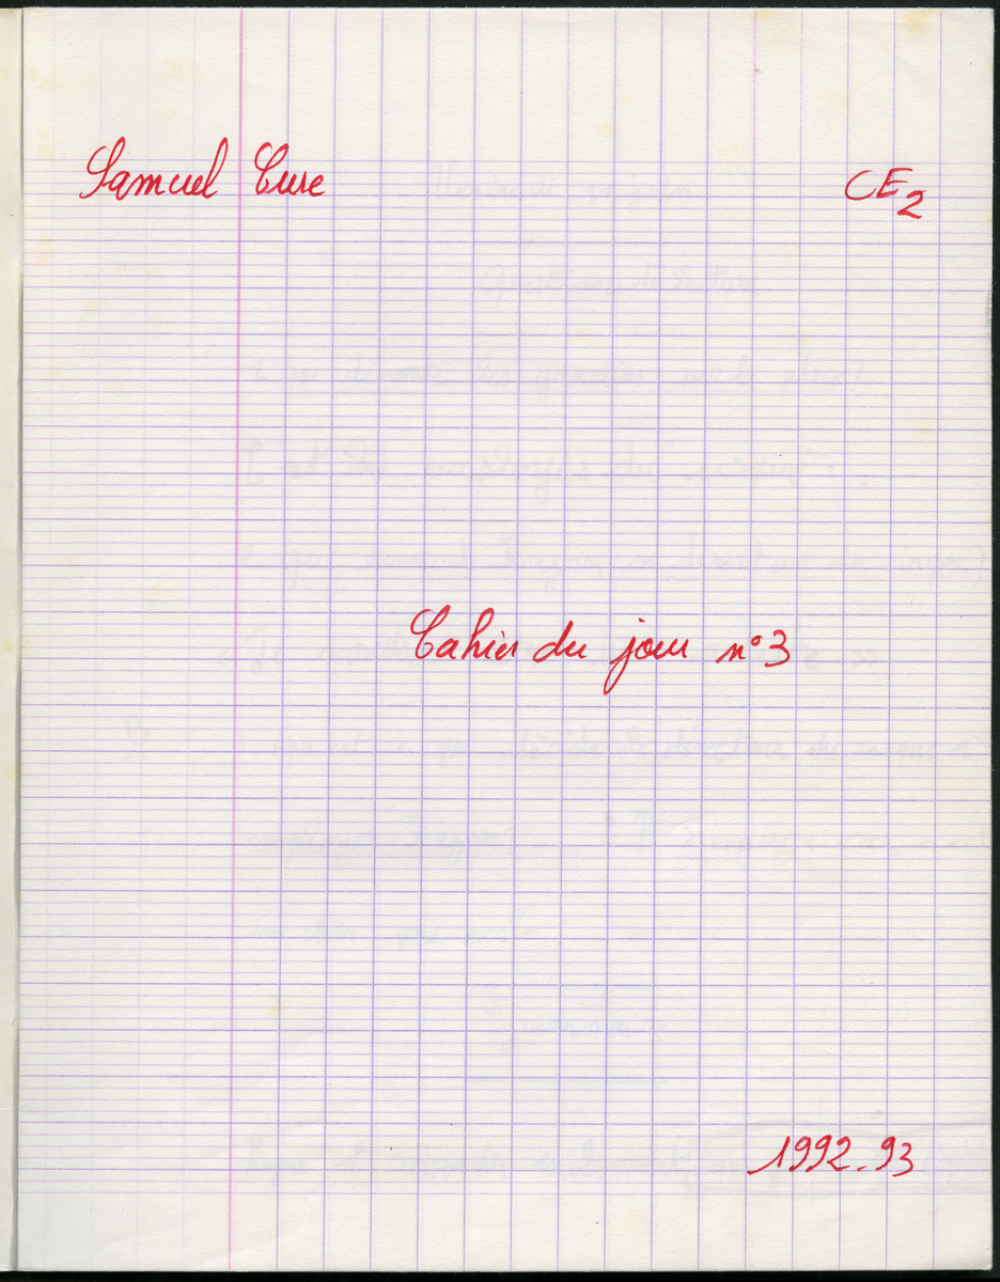 Samuel Cure CE2
Cahier du jour n°3
1992-93